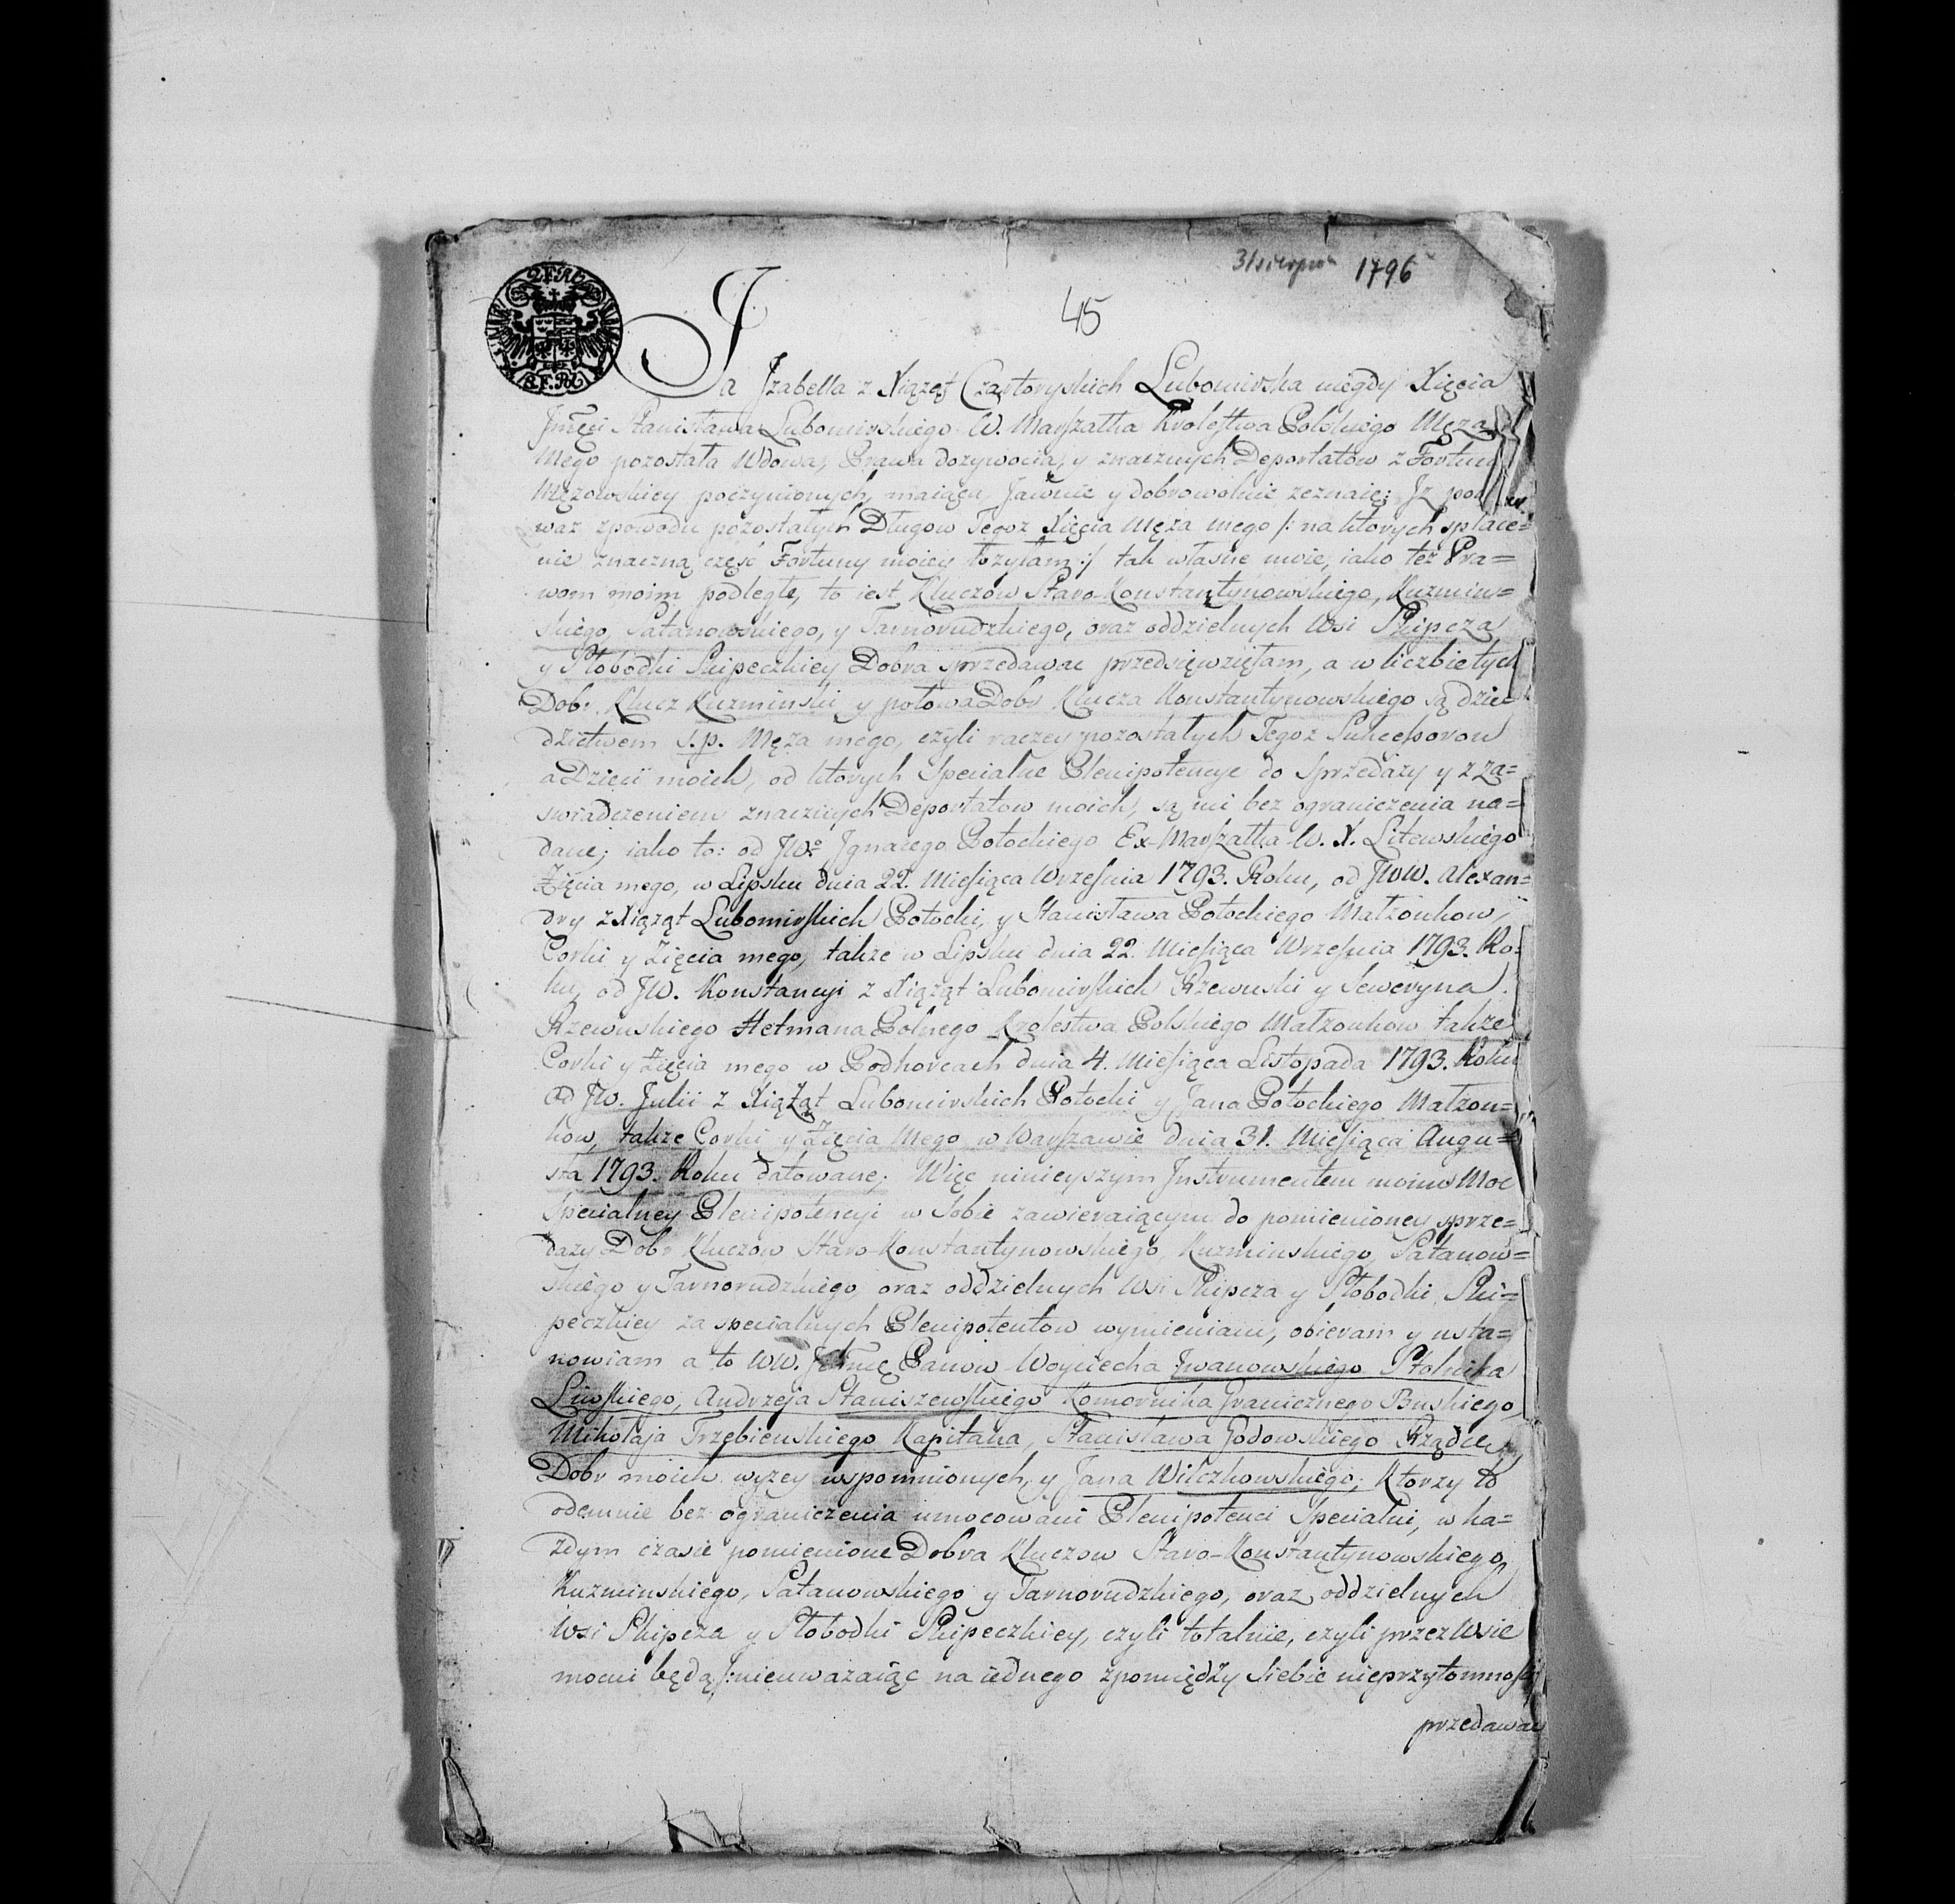 31 sierpnia 1796
45
2 F. Rh
8 F. Pol
Ja Jzabella z Xiążąt Czartoryskich Lubomirska niegdy Xięcia
Jmści Stanisława Lubomirskiego W. Marszałka Krolestwa Polskiego Męza
Mego pozostała Wdowa, Prawa dozywocia, y znacznych Deportatow z Fortun
Męzowskiey poczynionych, maiąca, Jawnie y dobrowolnie zeznaię: Jz
waz zpowodu pozostałych Długow Tegoz Xięcia Męza mego /: na ktorych spłace=
nie znaczną część Fortuny moiey łozyłam :/ tak własne moie, iako też Pra=
wom moim podległe, to iest Kluczów Staro-Konstantynowskiego, Kuzmin=
skiego, Satanowskiego, y Tarnorudzkiego, oraz oddzielnych Wsi Skipcza
y Słobodki Skipeczkiey Dobra sprzedawac przedsięwzięłam, a w liczbie tych
Dobr, Klucz Kuzminski y połowa Dobr Klucza Konstantynowskiego są dzie=
dzictwem ś. p. Męza mego, czyli raczey pozostałych Tegoz Sukcessorow
a Dzieci moich, od ktorych Specialne Plenipotencye do Sprzedazy y z za=
swiadczeniem znacznych Deportatow moich, są mi bez ograniczenia na=
dane; iako to: od JWo Jgnacego Potockiego Ex-Marszałka W. X. Litewskiego
Zięcia mego, w Lipsku dnia 22. Miesiąca Wrzesnia 1793. Roku, od JWW. Alexan=
dry z Xiążąt Lubomirskich Potocki, y Stanisława Potockiego Małzonkow,
Corki y Zięcia mego, takze w Lipsku dnia 22. Miesiąca Wrzesnia 1793. Ro=
ku, od JW. Konstancyi z Xiążąt Lubomirskich Rzewuski y Seweryna
Rzewuskiego Hetmana Polnego Krolestwa Polskiego Małzonkow takze
Corki y Zięcia mego w Podhorcach dnia 4. Miesiąca Listopada 1793. Roku
Od JW. Julii z Xiążąt Lubomirskich Potocki y Jana Potockiego Małzon=
kow, takze Corki y Zięcia Mego w Warszawie dnia 31. Miesiąca Augu=
sta 1793. Roku datowane; Więc ninieyszym Jnstrumentem moim Moc
Specialney Plenipotencyi w Sobie zawieraiącym do pomienioney sprze=
dazy Dobr Kluczow Staro-Konstantynowskiego, Kuzminskiego, Satanow=
skiego y Tarnorudzkiego, oraz oddzielnych Wsi Skipcza y Słobodki Ski=
peczkiey za specialnych Plenipotentow wymieniam, obieram y usta=
nowiam a to WW. Panow Woyciecha Jwanowskiego Stolnika
Liwskiego, Andrzeja Staniszewskiego Komornika Granicznego Buskiego,
Mikołaja Trzębienskiego Kapitana, Stanisława Godowskiego Rządcę
Dobr moich wyzey wspomnionych, y Jana Wilczkowskiego; Ktorzy to
odemnie bez ograniczenia umocowani Plenipotenci Specialni, w ka=
zdym czasie pomienione Dobra Kluczow Staro-Konstantynowskiego,
Kuzminskiego, Satanowskiego y Tarnorudzkiego, oraz oddzielnych
Wsi Skipcza y Słobodki Skipeczkiey, czyli totalnie, czyli przez Wsie
mocni będą /: nieuwazaiąc na iednego zpomiędzy Siebie nieprzytomność
przedawac